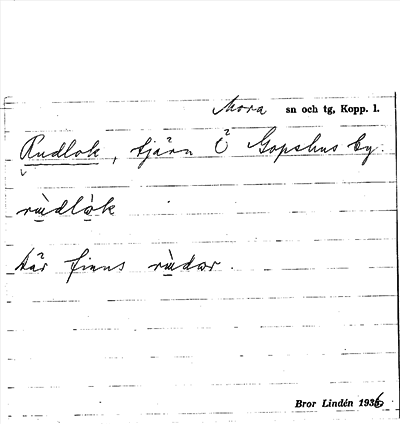 Mora sn och tg, Kopp. l.
Rudlok, tjärn Ö Gopshus by.
rùdlòk
där finns rùdar.
Bror Lindén 1936